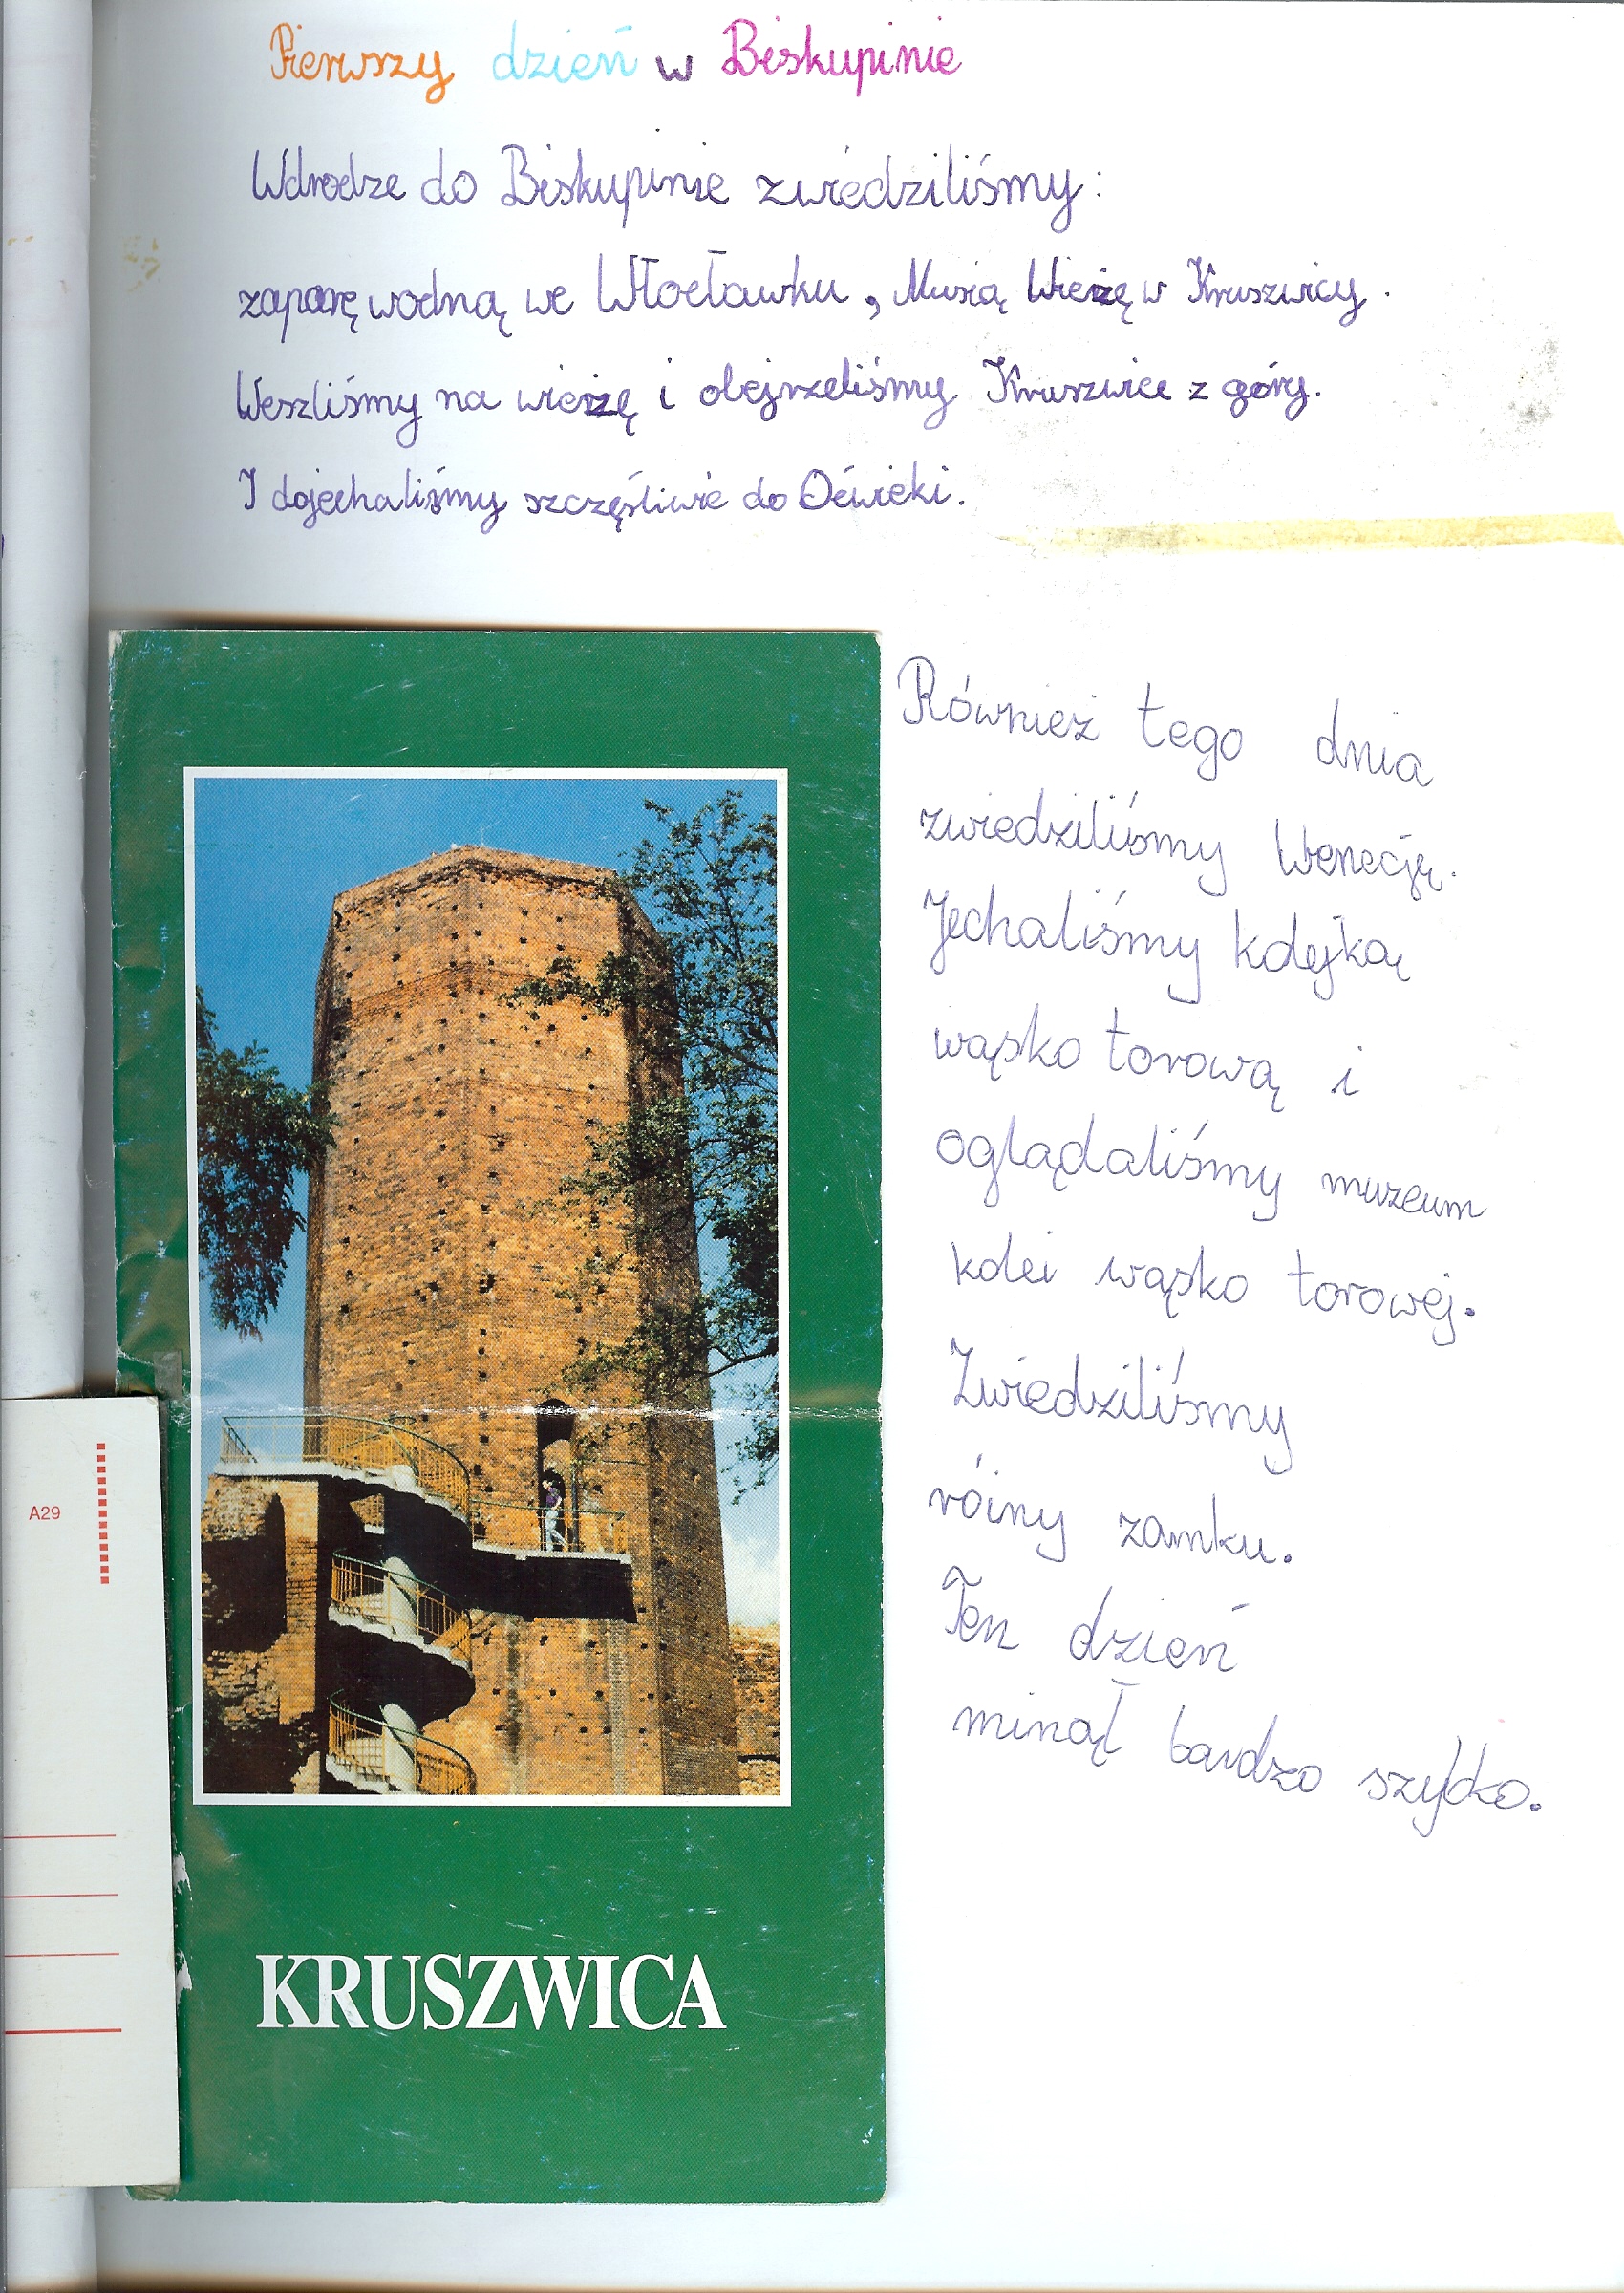 Pierwszy dzień w Biskupinie
Wdrodze do Biskupinie zwiedziliśmy:
zaporę wodną we Włocławku, Mysią Wieżę w Kruszwicy.
Weszliśmy na wieżę i obejrzeliśmy Kruszwice z góry.
I dojechaliśmy szczęśliwie do Oćwieki.
Również tego dnia
zwiedziliśmy Wenecję.
Jechaliśmy kolejką
wąsko torową i
oglądaliśmy muzeum
kolei wąsko torowej.
Zwiedziliśmy
róiny zamku.
Ten dzień
minął bardzo szybko.
A29
KRUSZWICA